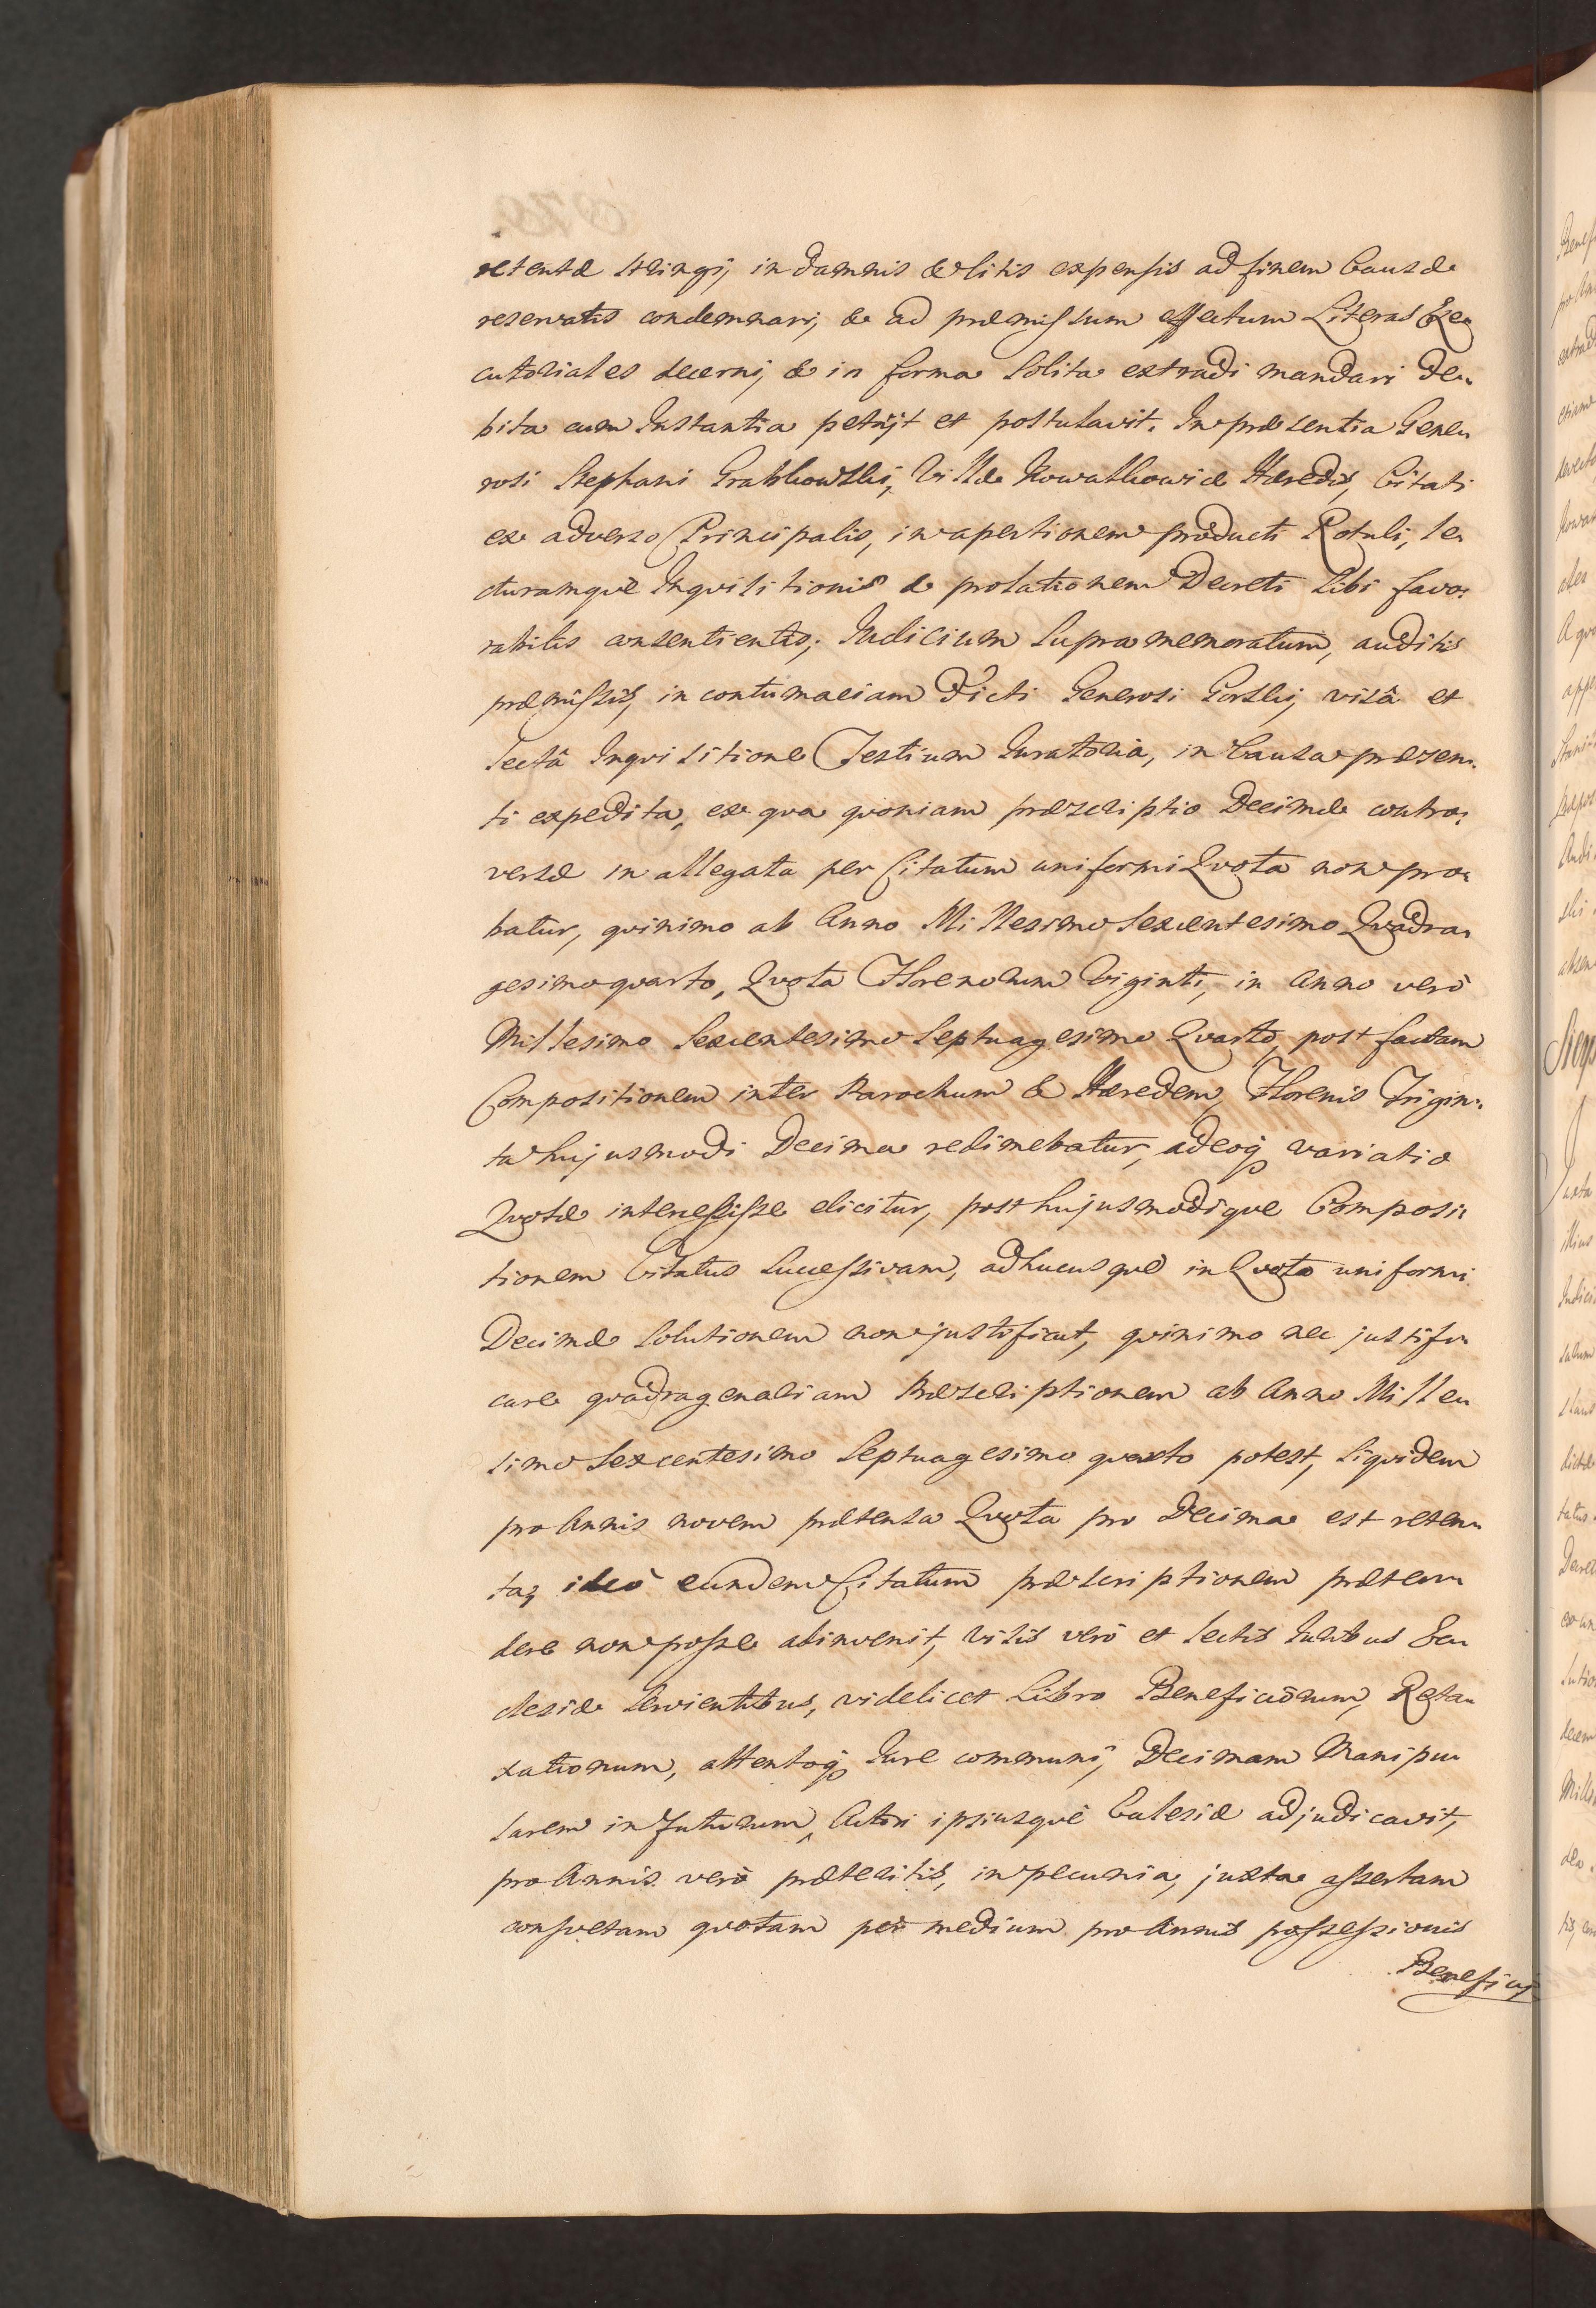 retentæ stringi, in damnis & litis expensis ad finem Causæ
reservatis condemnari, & ad præmissum effectum Literas Exe„
cutoriales decerni, & in forma solita extradi mandari de„
bita cum Instantia petijt et postulavit. In præsentia Gene„
rosi Stephani Grabkowski, Villæ Kowalkowicæ Hæredis, Citati
ex adverso Principalis, in apertionem producti Rotuli, le„
cturamque Inqvisitionis & prolationem Decreti sibi favo„
rabilis consentientis; Iudicium supra memoratum, auditis
præmissis, in contumaciam dicti Generosi Gorskij, visâ et
lectâ Inqvisitione Testium Iuratoria, in Causa præsen„
ti expedita, ex qva qvoniam præscriptio Decimæ contro„
versæ in allegata per Citatum uniformi Qvota non pro„
batur, qvinimo ab Anno Millesimo Sexcentesimo Qvadra„
gesimoqvarto, Qvota Florenorum Viginti, in Anno verò
Millesimo Sexcentesimo Septuagesimo Qvarto, post factam
Compositionem inter Parochum & Hæredem, Florenis Trigin„
ta hujusmodi Decima redimebatur, adeoq; variatio
Qvotæ intercessisse elicitur, post hujusmodique Composi„
tionem Citatus successivam, adhucusque in Qvota uniformi
Decimæ solutionem non justificat, qvinimo nec justifi„
care qvadragenariam Præscriptionem ab Anno Mille„
simo Sexcentesimo Septuagesimo qvarto potest, siqvidem
pro Annis novem prætensa Qvota pro Decima est reten„
ta, ideò eundem Citatum præscriptionem præten„
dere non posse adinvenit, visis verò et lectis Iuribus Ec„
clesiæ servientibus, videlicet Libro Beneficiorum, Reta„
xationum, attentoq; Iure communi, Decimam Manipu„
larem in futurum, Actori ipsiusque Ecclesiæ adjudicavit,
pro Annis verò præteritis, in pecunia, juxta assertam
consvetam qvotam per medium pro Annis possessionis
Beneficij